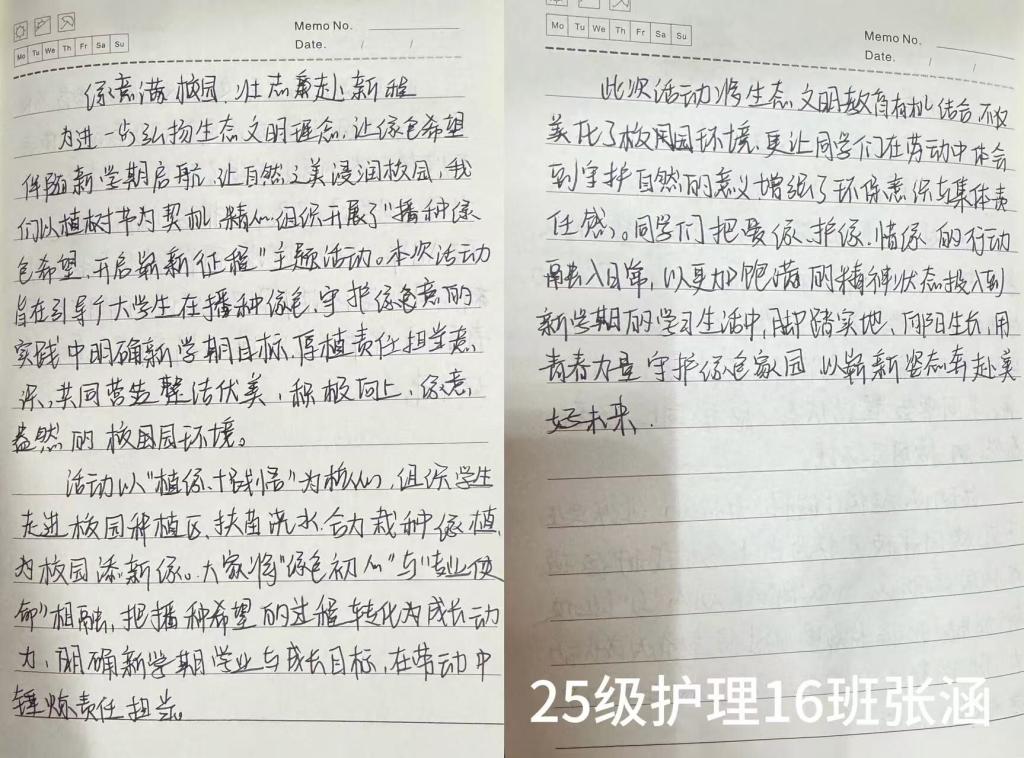 Memo No.
Mo Tu We Th Fr Sa Su
Date. / /
绿意满校园,壮志奔赴新程
为进一步弘扬生态文明理念,让绿色希望
伴随新学期启航,让自然之美浸润校园,我
们以植树节为契机,精心组织开展了“播种绿
色希望,开启崭新征程”主题活动。本次活动
旨在引导广大学生在播种绿色、守护绿色意的
实践中明确新学期目标,厚植责任担当意
识,共同营造整洁优美,积极向上,绿意
盎然的校园园环境。
活动以“植绿+践悟”为核心,组织学生
走进校园种植区,扶苗浇水,合力栽种绿植,
为校园添新绿。大家将“绿色初心”与“专业使
命”相融,把播种希望的过程转化为成长动
力,明确新学期学业与成长目标,在劳动中
锤炼责任担当。
Mo Tu We Th Fr Sa Su
Memo No.
Date. / /
此次活动将生态文明教育有机结合,不仅
美化了校园园环境,更让同学们在劳动中体会
到守护自然的意义,增强了环保意识与集体责
任感。同学们把爱绿、护绿、惜绿的行动
融入日常,以更加饱满的精神状态投入到
新学期的学习生活中,脚踏实地、向阳生长,用
青春力量守护绿色家园,以崭新姿态奔赴美
好未来.
25级护理16班张涵